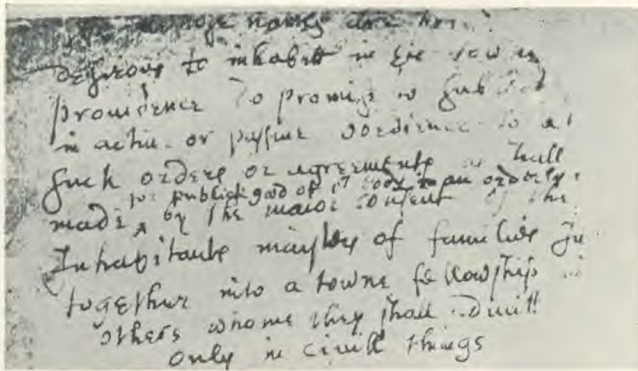 whose names are her
desirous to inhabitt in ye tow
providence do promise to subject
in active or passive obedience to al
such orders or agreements as shall
for publick good of or body in an orderly
made by the maior consent of the
Inhabitants maisters of families In
together into a towne fellowship
others whome they shall admitt
only in civill things